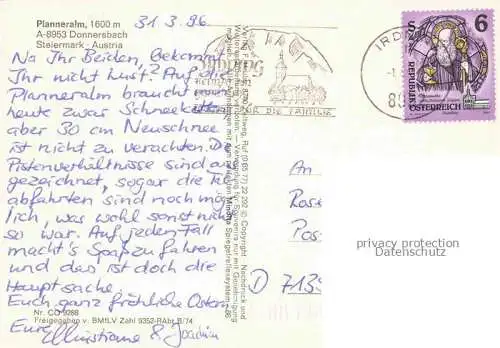 Planneralm, 1600 m
A-8953 Donnersbach
Steiermark - Austria
31.3.96
Na Ihr Beiden, Bekommt
Ihr nicht Lust? Auf die
Planneralm braucht man
heute zwar Schneeketten
aber 30 cm Neuschnee
ist nicht zu verachten. Die
Pistenverhältnisse sind aus-
gezeichnet, sogar die Tal
abfahrten sind noch mög-
lich, was wohl sonst nicht
so war. Auf jeden Fall
macht's Spaß zu fahren
und das ist doch die
Hauptsache.
Euch ganz fröhliche Ostern
Eure Christiane & Joachim
Nr. CO 9268
Freigegeben v. BMfLV Zahl 9352-RAbt B/74
FÜR DIE FAMILIE
IRD
6
REPUBLIK
ÖSTERREICH
An
Ros
Pos
D 713
privacy protection
Datenschutz